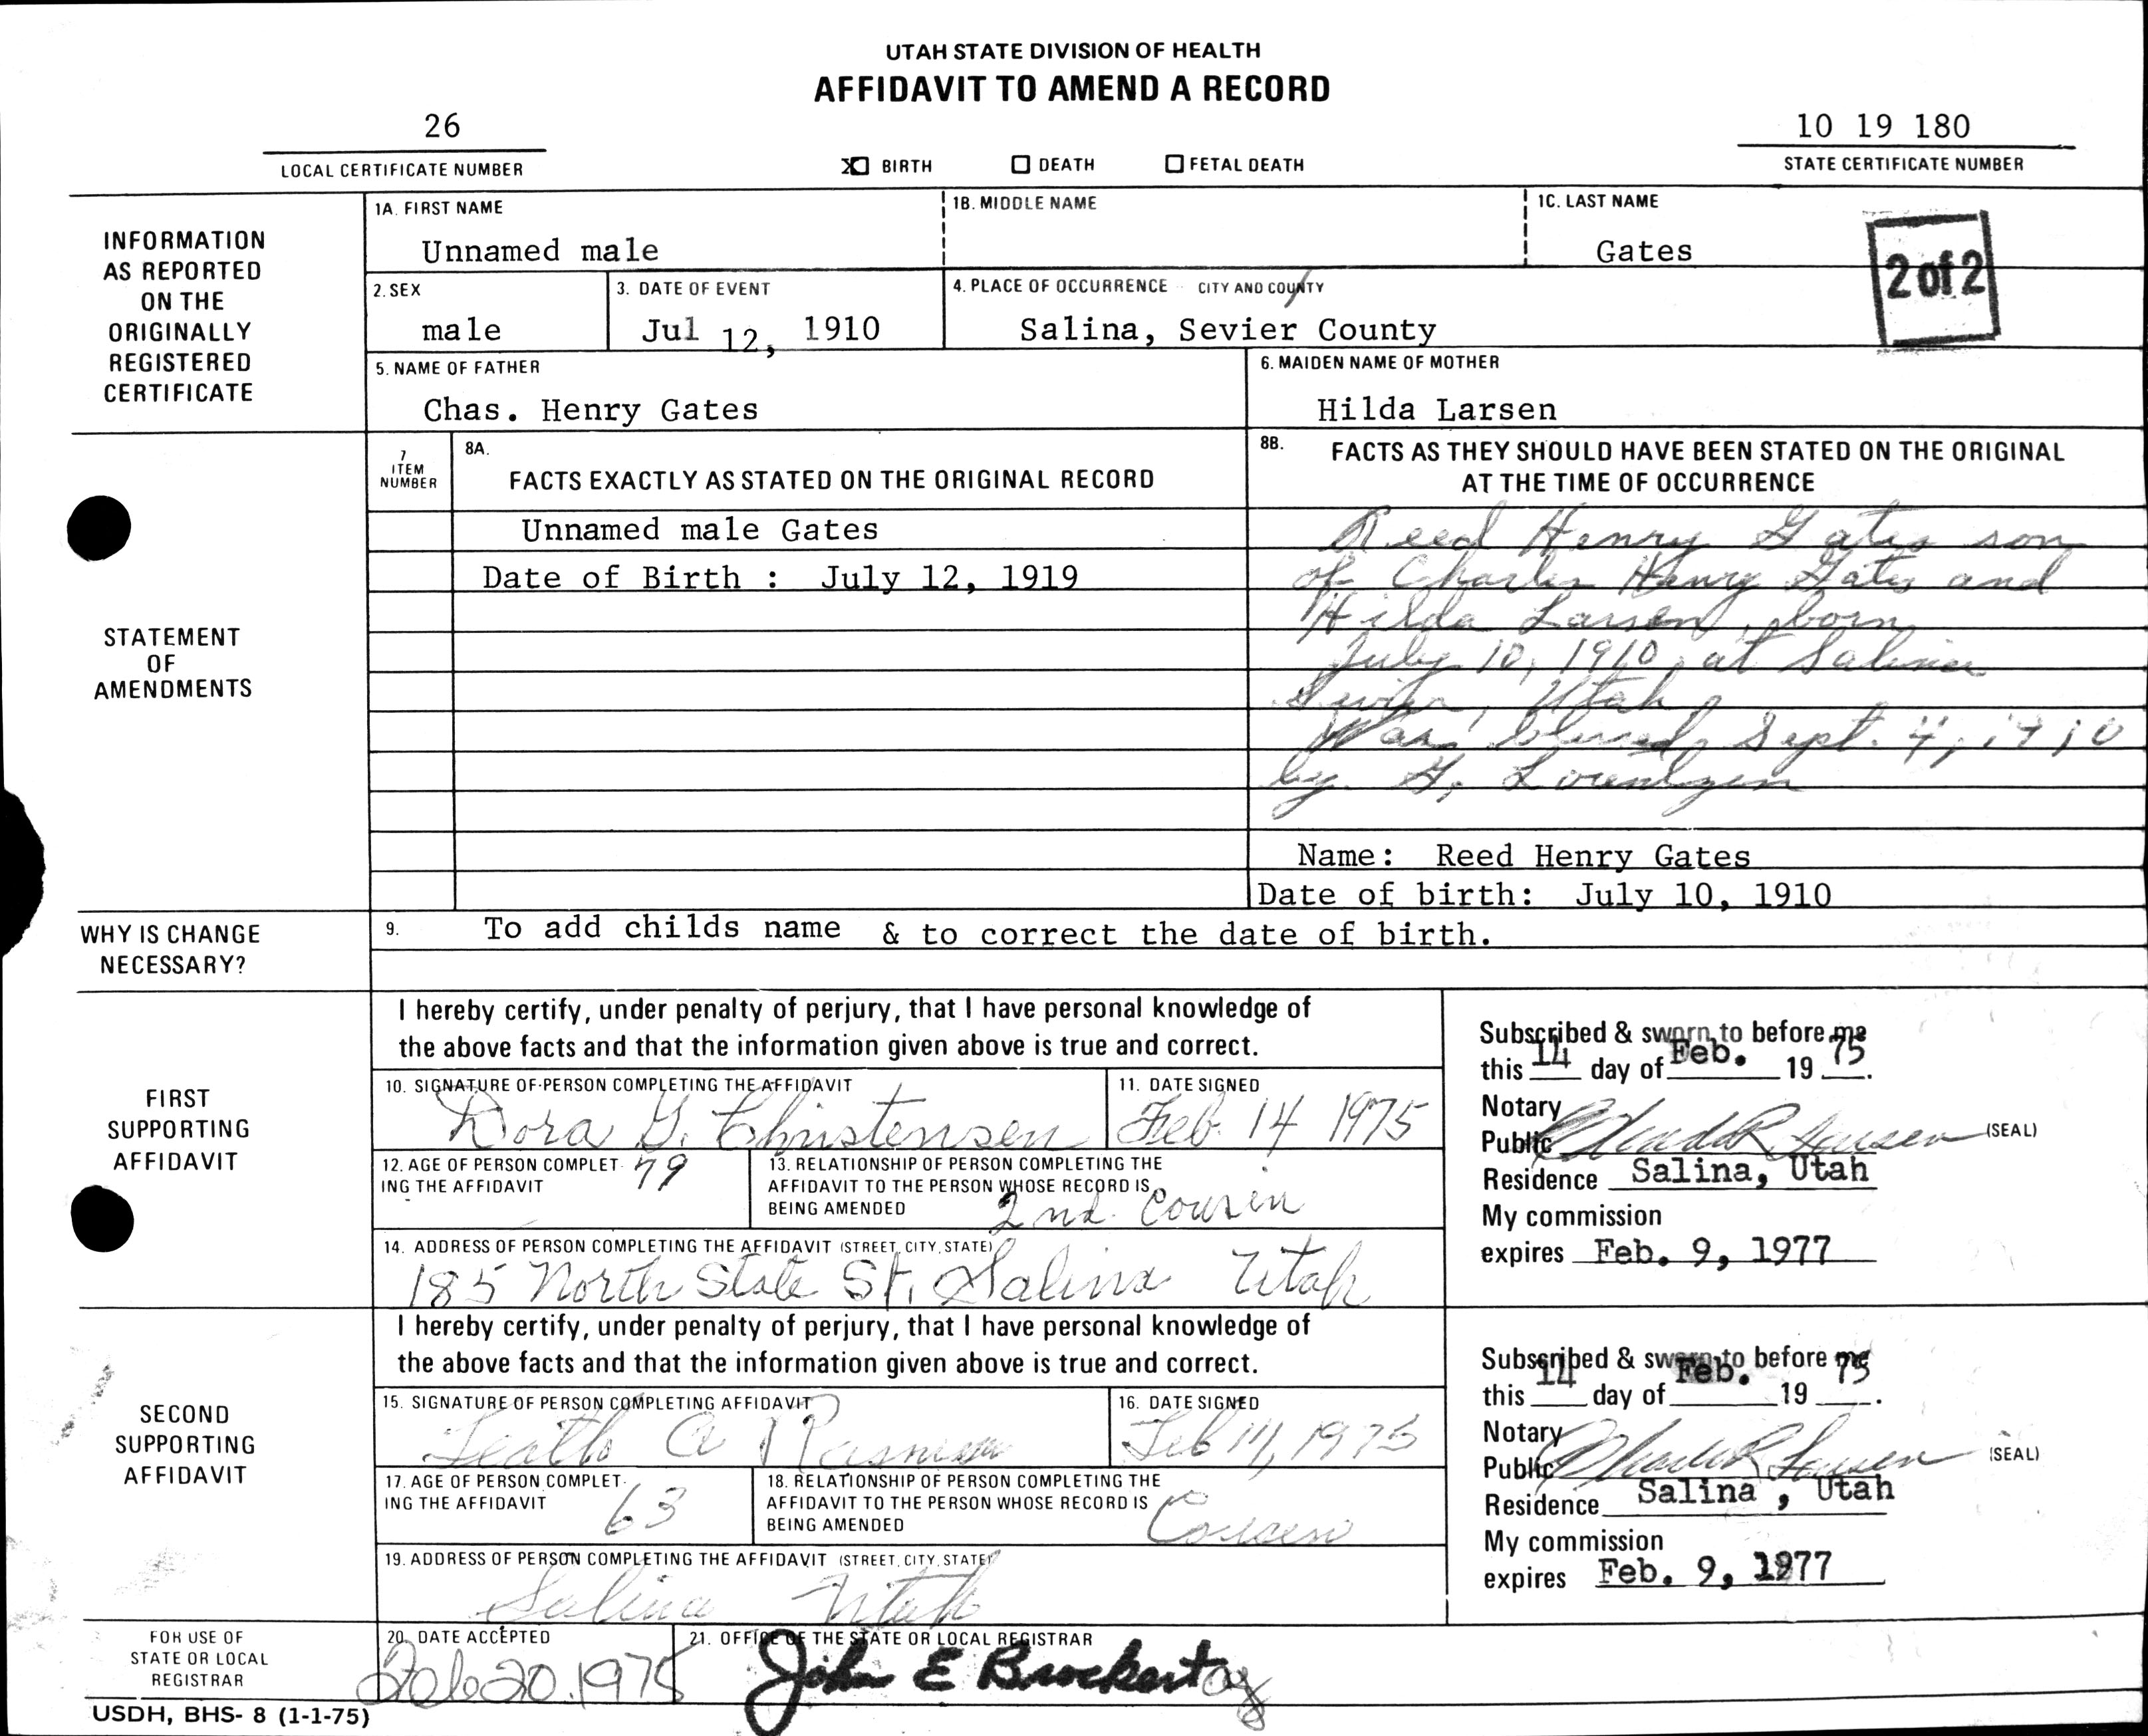 UTAH STATE DIVISION OF HEALTH
AFFIDAVIT TO AMEND A RECORD
26
LOCAL CERTIFICATE NUMBER
X BIRTH
DEATH
FETAL DEATH
10 19 180
STATE CERTIFICATE NUMBER
INFORMATION
AS REPORTED
ON THE
ORIGINALLY
REGISTERED
CERTIFICATE
1A. FIRST NAME
Unnamed male
1B. MIDDLE NAME
1C. LAST NAME
Gates
2 of 2
2. SEX
male
3. DATE OF EVENT
Jul 12, 1910
4. PLACE OF OCCURRENCE CITY AND COUNTY
Salina, Sevier County
5. NAME OF FATHER
Chas. Henry Gates
6. MAIDEN NAME OF MOTHER
Hilda Larsen
STATEMENT
OF
AMENDMENTS
7
ITEM
NUMBER
8A.
FACTS EXACTLY AS STATED ON THE ORIGINAL RECORD
Unnamed male Gates
Date of Birth : July 12, 1919
8B. FACTS AS THEY SHOULD HAVE BEEN STATED ON THE ORIGINAL
AT THE TIME OF OCCURRENCE
Reed Henry Gates son
of Charles Henry Gates and
Hilda Larsen, born
July 10, 1910, at Salina
Sevier, Utah
Was blessed, Sept. 4, 1910
by. G, Lorentzen
Name: Reed Henry Gates
Date of birth: July 10, 1910
WHY IS CHANGE
NECESSARY?
9. To add childs name & to correct the date of birth.
FIRST
SUPPORTING
AFFIDAVIT
I hereby certify, under penalty of perjury, that I have personal knowledge of
the above facts and that the information given above is true and correct.
10. SIGNATURE OF PERSON COMPLETING THE AFFIDAVIT
Dora G. Christensen
11. DATE SIGNED
Feb. 14 1975
12. AGE OF PERSON COMPLET-
ING THE AFFIDAVIT
79
13. RELATIONSHIP OF PERSON COMPLETING THE
AFFIDAVIT TO THE PERSON WHOSE RECORD IS
BEING AMENDED
2nd. Cousin
14. ADDRESS OF PERSON COMPLETING THE AFFIDAVIT (STREET, CITY, STATE)
185 North State St. Salina Utah
Subscribed & sworn to before me
this 14 day of Feb. 19 75.
Notary
Public (SEAL)
Residence Salina, Utah
My commission
expires Feb. 9, 1977
SECOND
SUPPORTING
AFFIDAVIT
I hereby certify, under penalty of perjury, that I have personal knowledge of
the above facts and that the information given above is true and correct.
15. SIGNATURE OF PERSON COMPLETING AFFIDAVIT
16. DATE SIGNED
Feb 14, 1975
17. AGE OF PERSON COMPLET-
ING THE AFFIDAVIT
63
18. RELATIONSHIP OF PERSON COMPLETING THE
AFFIDAVIT TO THE PERSON WHOSE RECORD IS
BEING AMENDED
19. ADDRESS OF PERSON COMPLETING THE AFFIDAVIT (STREET, CITY, STATE)
Salina Utah
Subscribed & sworn to before me
this 14 day of Feb. 19 75.
Notary
Public (SEAL)
Residence Salina, Utah
My commission
expires Feb. 9, 1977
FOR USE OF
STATE OR LOCAL
REGISTRAR
20. DATE ACCEPTED
Feb 20. 1975
21. OFFICE OF THE STATE OR LOCAL REGISTRAR
John E Brockert
USDH, BHS- 8 (1-1-75)